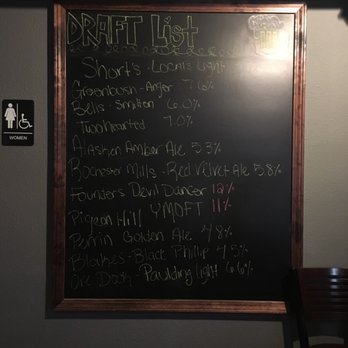 DRAFT List
Short's - Locals Light
Greenbush - Anger 7.6%
Bells - Smitten 6.0%
Two Hearted 7.0%
Alaskan Amber Ale 5.3%
Rochester Mills - Red Velvet Ale 5.8%
Founders Devil Dancer 12%
Pigeon Hill YMOFT 11%
Perrin Golden Ale 4.8%
Blakes - Black Phillip 4.5%
Ore Dock - Paulding light 6.6%
WOMEN